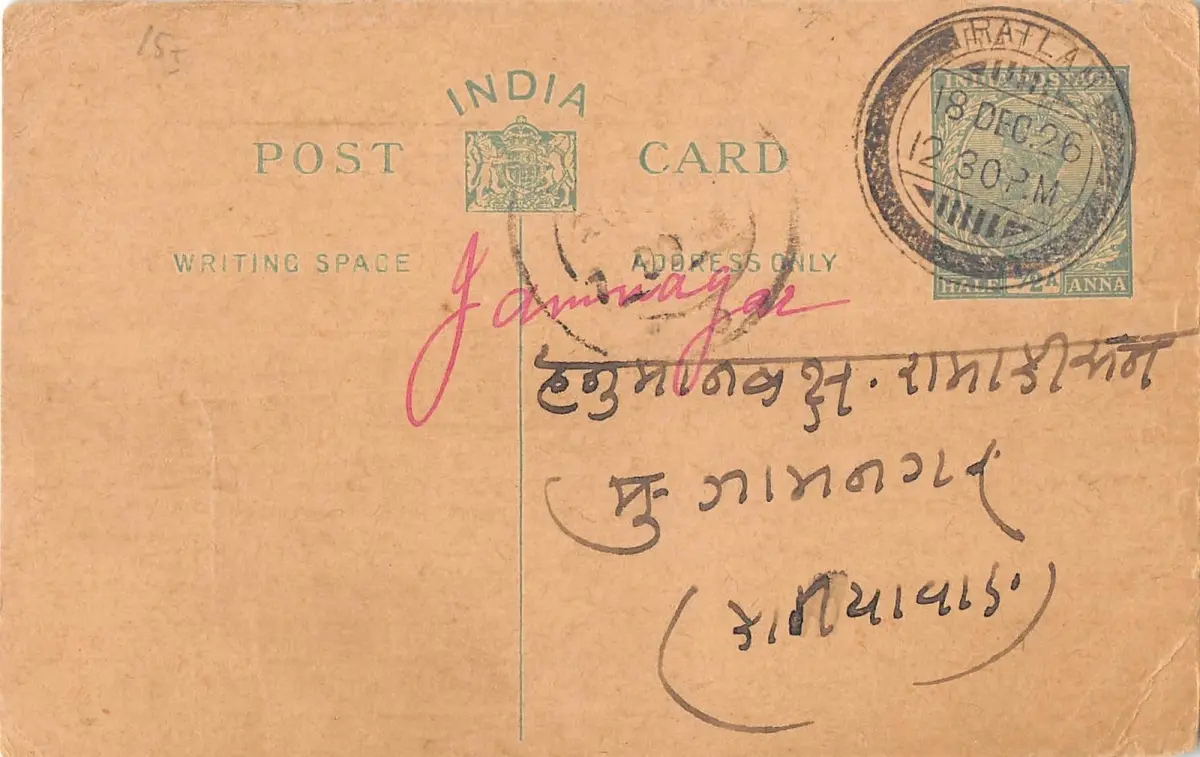 15
INDIA
POST CARD
WRITING SPACE
ADDRESS ONLY
RATLAM
18 DEC.26
12 30 P.M
INDIA POSTAGE
HALF ½A ANNA
Jamnagar
हनुमानबक्ष. रामाकीसन
मु. जामनगर
(काठीयावाड.)